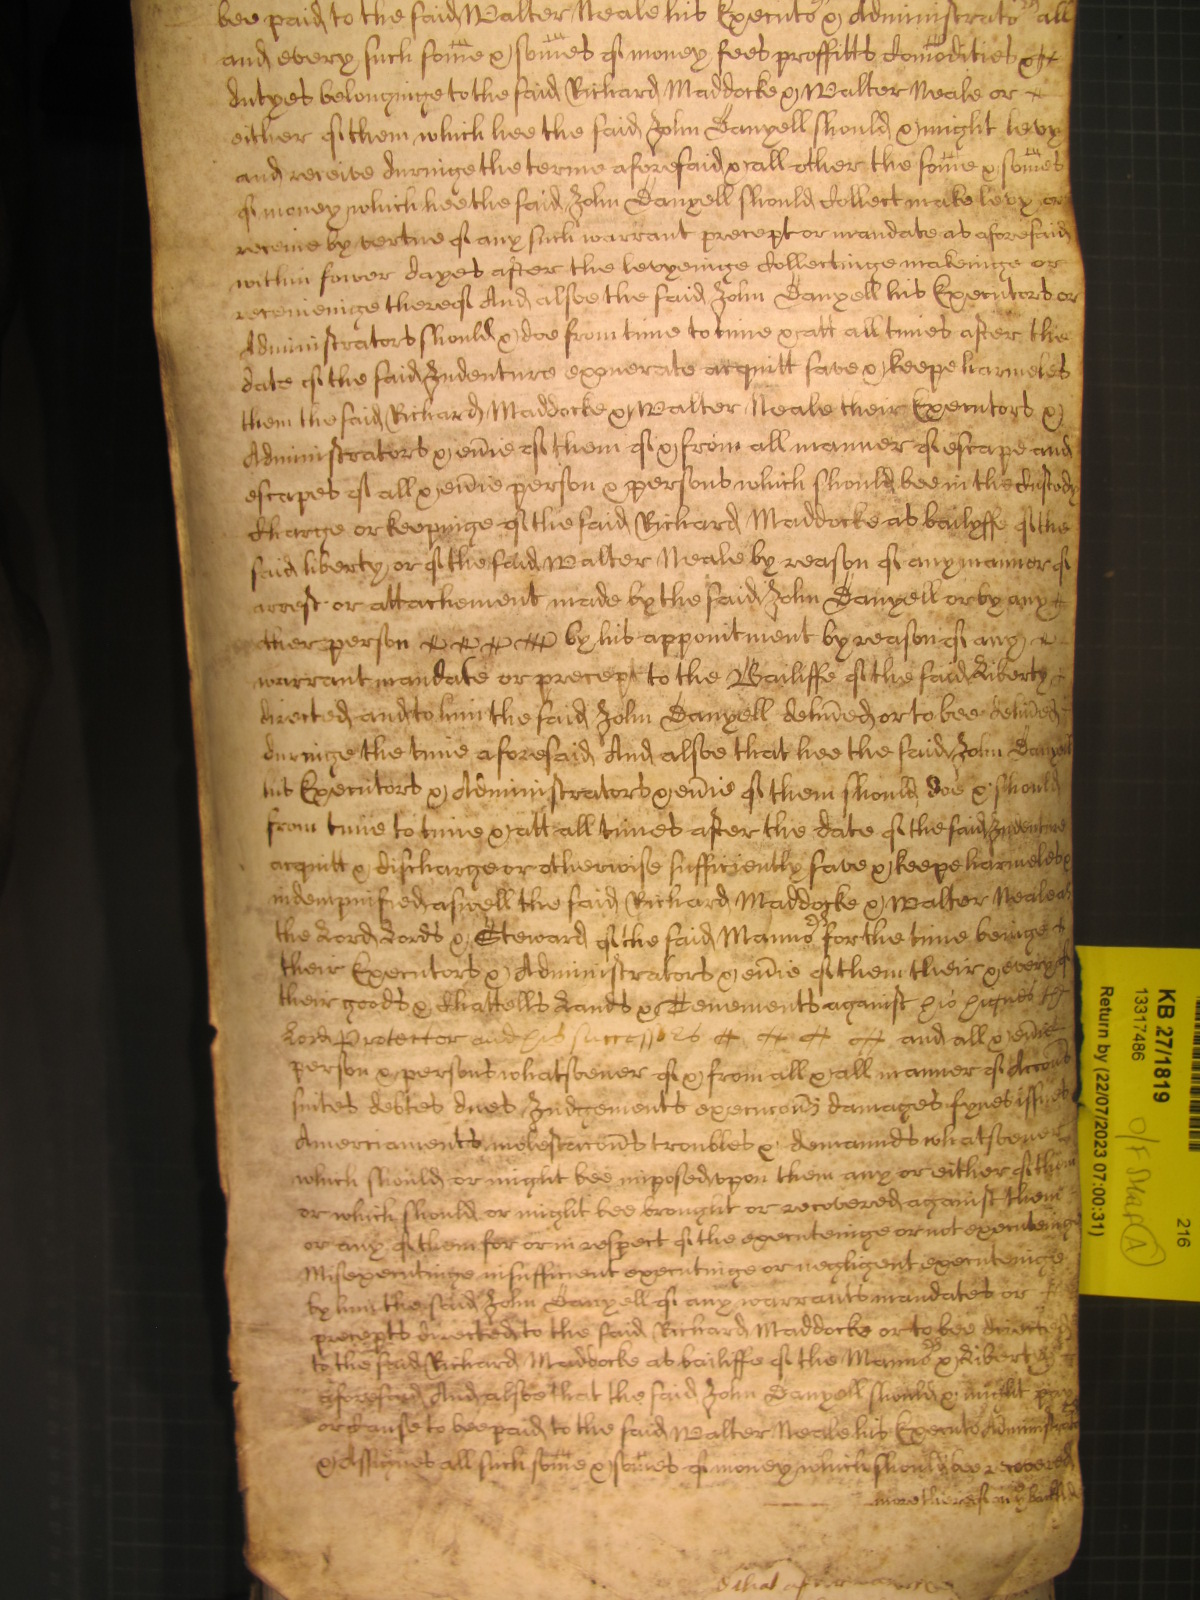 bee paid to the said Walter Neale his Executors & Administrators all
and every such some & somes of money fees proffitts comodities &
dutyes belonginge to the said Richard Maddocke & Walter Neale or
either of them which hee the said John Danyell should & might levy
and receive duringe the terme aforesaid & all other the some & somes
of money which hee the said John Danyell should collect make levy or
receive by vertue of any such warrant precept or mandate as aforesaid
within fower dayes after the levyeinge collectinge makeinge or
receiveinge thereof And alsoe the said John Danyell his Executors or
Administrators should & doe from time to time & att all times after the
date of the said Indenture exonerate acquitt save & keepe harmeles
them the said Richard Maddocke & Walter Neale their Executors &
Administrators & eũie of them of & from all manner of escape and
escapes of all & eũie person & persons which should bee in the custody
charge or keepinge of the said Richard Maddocke as bailyffe of the
said liberty or of the said Walter Neale by reason of any manner of
arrest or attachement made by the said John Danyell or by any
other person by his appointment by reason of any
warrant mandate or precept to the Bailiffe of the said Liberty
directed and to him the said John Danyell deliũed or to bee deliũed
duringe the time aforesaid And alsoe that hee the said John Danyell
his Executors & Administrators & eũie of them should doe & should
from time to time & att all times after the date of the said Indenture
acquitt & discharge or otherwise sufficiently save & keepe harmeles &
indempnified aswell the said Richard Maddocke & Walter Neale as
the Lord Lords & Steward of the said Mannor for the time beinge
their Executors & Administrators & eũie of them their & every of
their goods & Chattells Lands & Tenements against his highnes the
Lord Protector and his successors and all & eũie
person & persons whatsoever of & from all & all manner of Accons
suites debtes dues Judgements execucons damages fynes issues
Amerciaments molestacons troubles & demaunds whatsoever
which should or might bee imposed upon them any or either of them
or which should or might bee brought or recovered against them
or any of them for or in respect of the executeinge or not executeinge
Misexecutinge insufficient executinge or negligent executeinge
by him the said John Danyell of any warrants mandates or
precepts directed to the said Richard Maddocke or to bee directed
to the said Richard Maddocke as bailiffe of the Mannor & Liberty
aforesaid And alsoe that the said John Danyell should & might pay
or cause to bee paid to the said Walter Neale his Executors Administrators
& Assignes all such some & somes of money which should bee recovered
more thereof in backside
KB 27/1819
216
13317486
O/F Star A
Return by (22/07/2023 07:00:31)